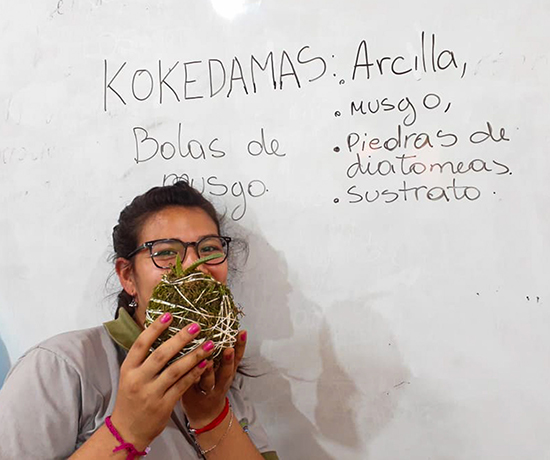 KOKEDAMAS:
Bolas de
musgo.
. Arcilla,
. musgo,
. Piedras de
diatomeas.
. sustrato.